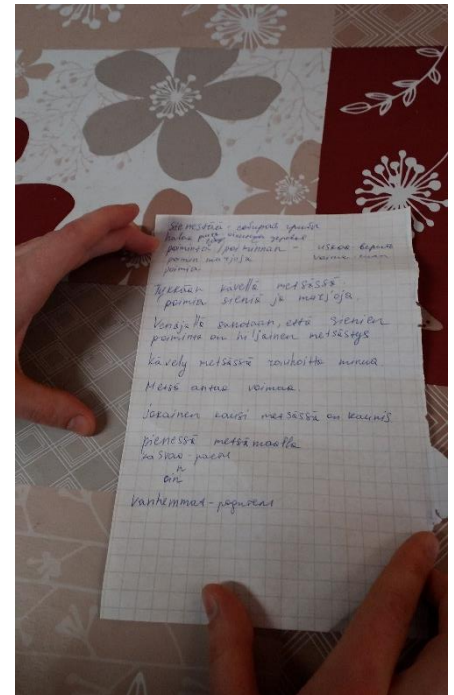 Sienestää - собирать грибы
poimintaa / poiminnan - uskoa верить
poimia marjoja voima сила
poimia
Tykkään kävellä metsässä
poimia sieniä ja marjoja
Venäjällä sanotaan, että sienien
poiminta on hiljainen metsästys
Kävely metsässä rauhoitta minua.
Metsä antaa voimaa.
jokainen kausi metsässä on kaunis
pienessä metsämaalla
kasvaa - растет
n
oin
Vanhemmat - родители